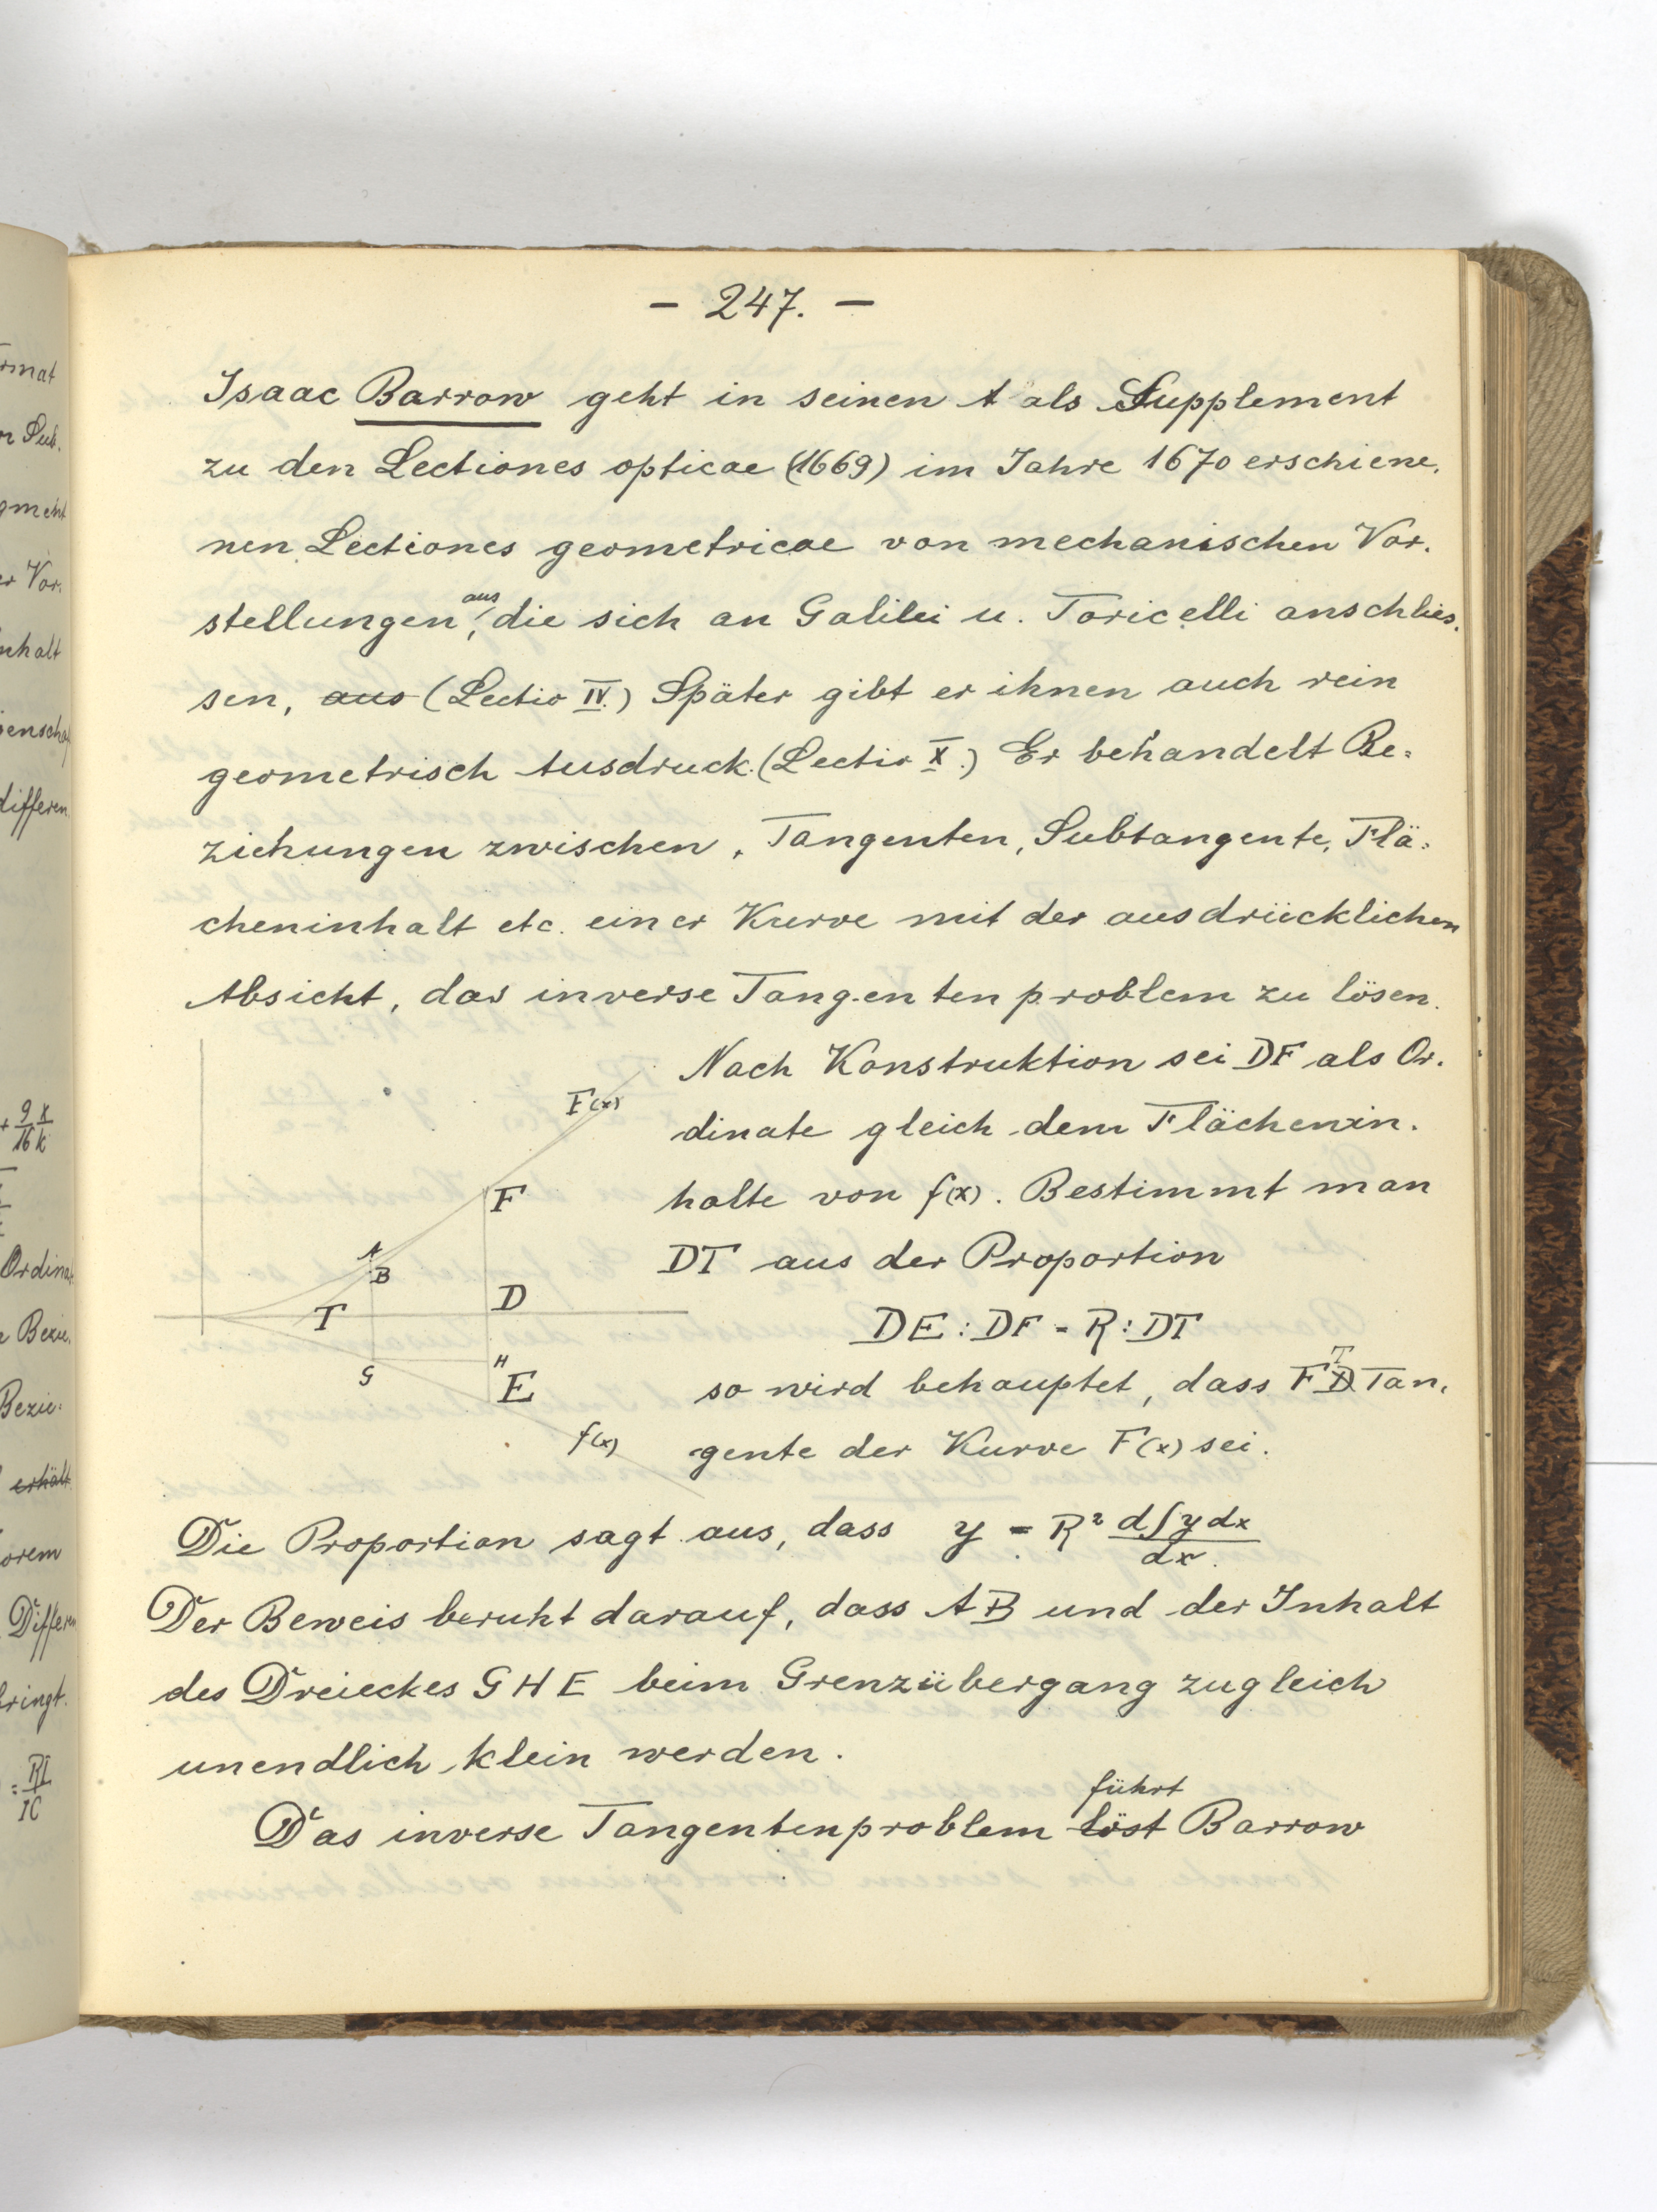 - 247. -
Isaac Barrow geht in seinen A als Supplement
zu den Lectiones opticae (1669) im Jahre 1670 erschiene-
nen Lectiones geometricae von mechanischen Vor-
aus
stellungen, die sich an Galilei u. Toricelli anschlies-
sen, aus (Lectio IV.) Später gibt er ihnen auch rein
geometrisch Ausdruck. (Lectio X.) Er behandelt Be-
ziehungen zwischen, Tangenten, Subtangente, Flä-
cheninhalt etc. einer Kurve mit der ausdrücklichen
Absicht, das inverse Tangentenproblem zu lösen.
Nach Konstruktion sei DF als Or-
dinate gleich dem Flächenin-
halte von f(x). Bestimmt man
DT aus der Proportion
DE : DF = R : DT
T
so wird behauptet, dass FD Tan-
gente der Kurve F(x) sei.
F(x)
F
A
B
T
D
G
H
E
f(x)
Die Proportion sagt aus, dass y = R² d∫y dx / dx.
Der Beweis beruht darauf, dass AB und der Inhalt
des Dreieckes GHE beim Grenzübergang zugleich
unendlich klein werden.
führt
Das inverse Tangentenproblem löst Barrow
n Sub.
gment
er Vor.
nhalt
differen
+ 9/16 x/k
Ordinat
e Bezie.
Bezie-
erhält
orem
Differen
bringt.
= RI/IC